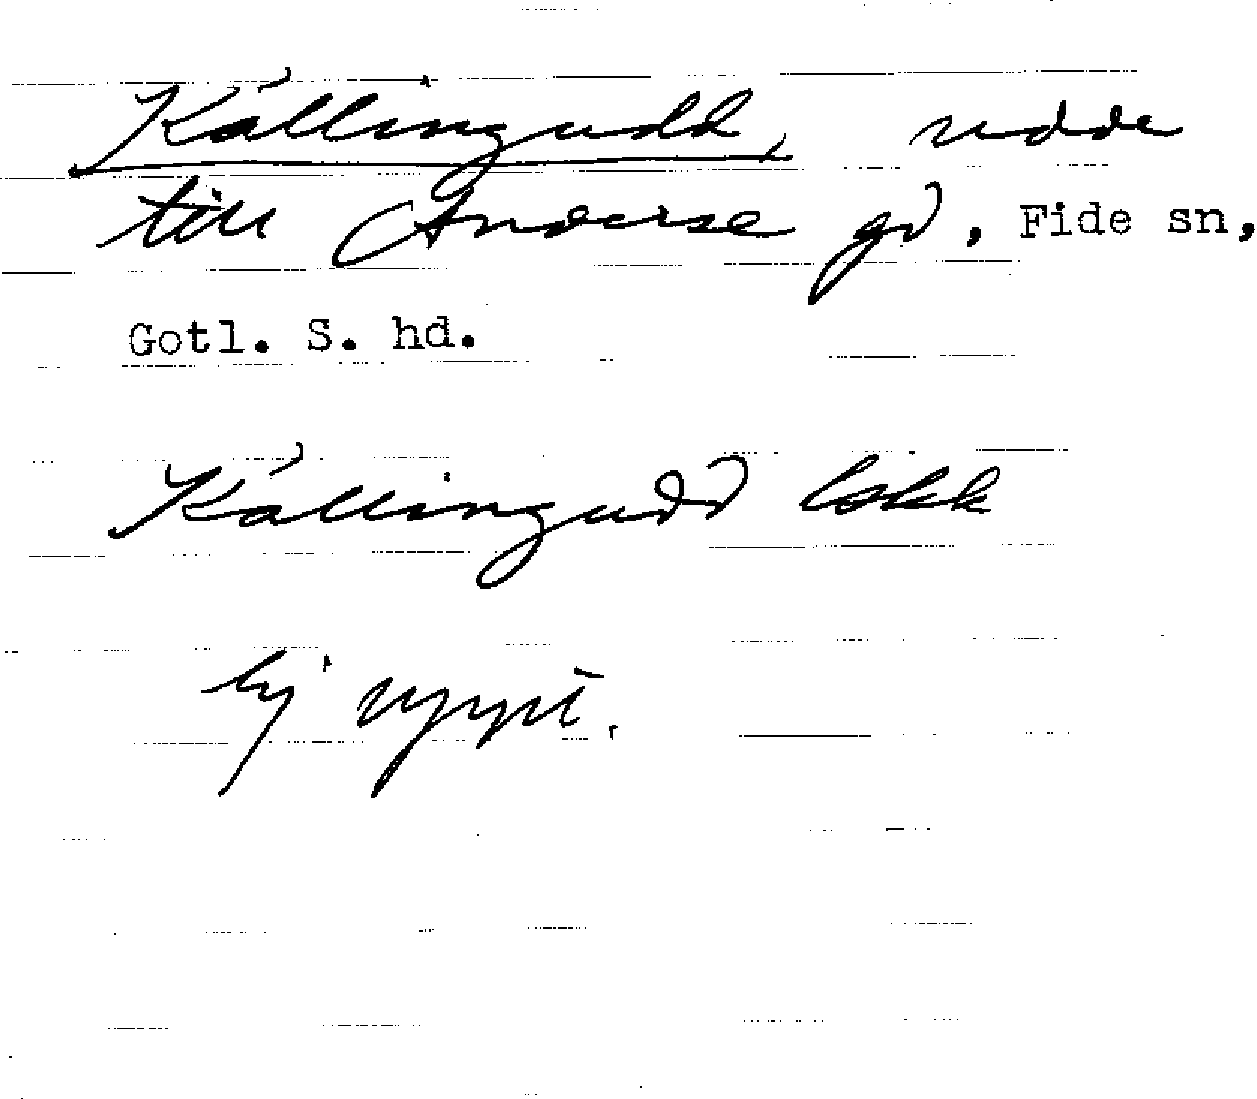 Källingudd, udde
till Anderse gd, Fide sn,
Gotl. S. hd.
Källingudd lokk
Ej nypt.